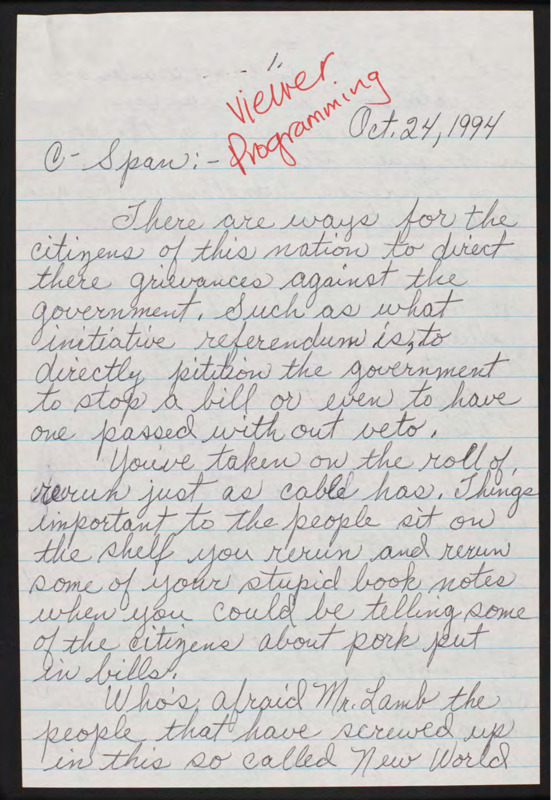 1.
Viewer
Programming
Oct. 24, 1994
C-Span:-
There are ways for the
citizens of this nation to direct
there grievances against the
government. Such as what
initiative referendum is, to
directly pitition the government
to stop a bill or even to have
one passed with out veto.
You've taken on the roll of
rerun just as cable has. Things
important to the people sit on
the shelf you rerun and rerun
some of your stupid book notes
when you could be telling some
of the citizens about pork put
in bills.
Who's afraid Mr. Lamb the
people that have screwed up
in this so called New World